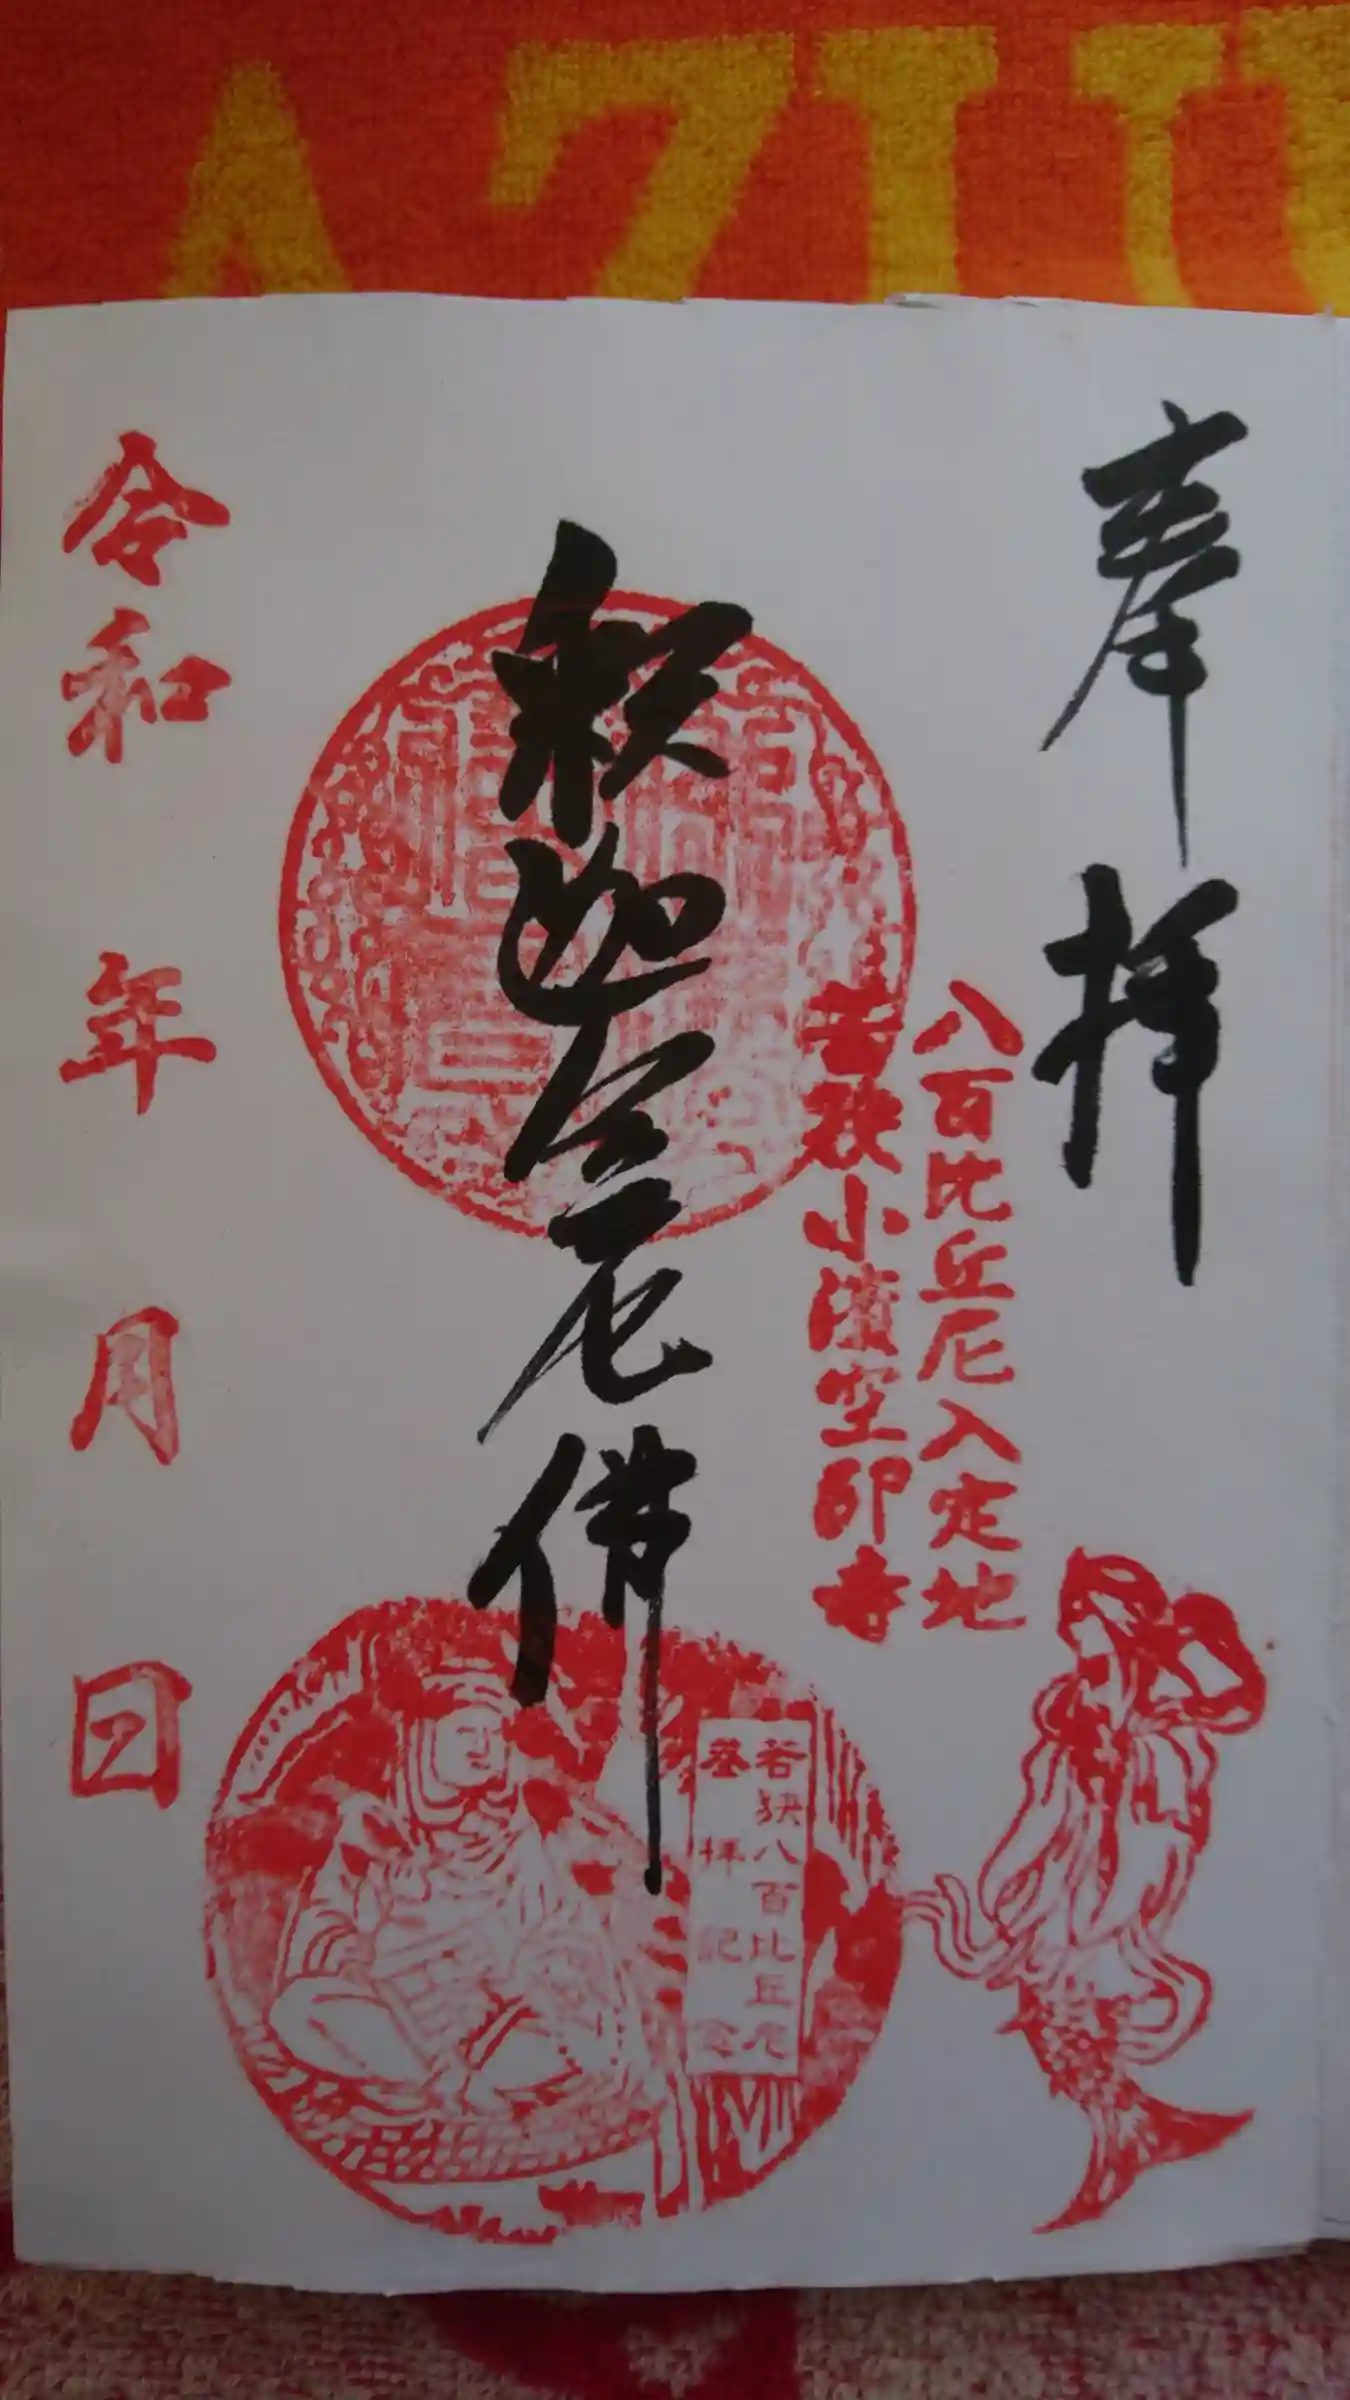 AZU
奉拝
八百比丘尼入定地
若狭小濱空印寺
釈迦牟尼佛
若狭八百比丘尼
墓拝記念
令和 年 月 日